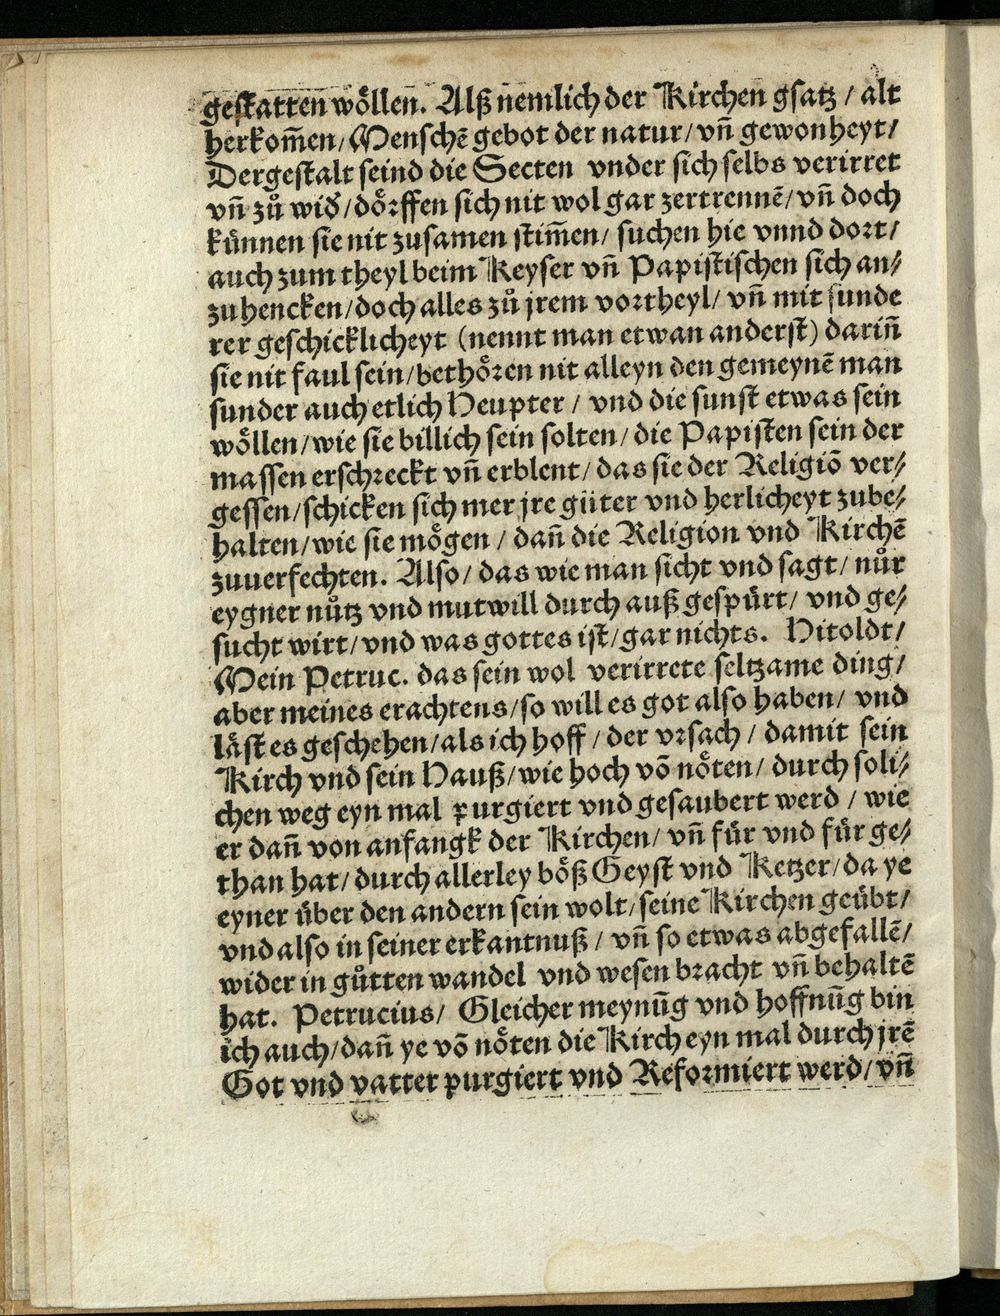 gestatten wöllen. Alß nemlich der Kirchen gsatz / alt
herkom̃en / Menschẽ gebot der natur / vñ gewonheyt /
Dergestalt seind die Secten vnder sich selbs verirret
vñ zů wid̕ / dörffen sich nit wol gar zertrennẽ / vñ doch
künnen sie nit zusamen stim̃en / suchen hie vnnd dort /
auch zum theyl beim Keyser vñ Papistischen sich an⸗
zuhencken / doch alles zů jrem vortheyl / vñ mit sunde
rer geschicklicheyt (nennt man etwan anderst) dariñ
sie nit faul sein / bethören nit alleyn den gemeynẽ man
sunder auch etlich Heupter / vnd die sunst etwas sein
wöllen / wie sie billich sein solten / die Papisten sein der
massen erschreckt vñ erblent / das sie der Religiõ ver⸗
gessen / schicken sich mer jre güter vnd herlicheyt zube⸗
halten / wie sie mögen / dañ die Religion vnd Kirchẽ
zuuerfechten. Also / das wie man sicht vnd sagt / nůr
eygner nůtz vnd mutwill durch auß gespürt / vnd ge⸗
sucht wirt / vnd was gottes ist / gar nichts. Hitoldt /
Mein Petruc. das sein wol verirrete seltzame ding /
aber meines erachtens / so will es got also haben / vnd
läst es geschehen / als ich hoff / der vrsach / damit sein
Kirch vnd sein Hauß / wie hoch võ nöten / durch soli⸗
chen weg eyn mal purgiert vnd gesaubert werd / wie
er dañ von anfangk der Kirchen / vñ für vnd für ge⸗
than hat / durch allerley böß Geyst vnd Ketzer / da ye
eyner über den andern sein wolt / seine Kirchen geübt /
vnd also in seiner erkantnuß / vñ so etwas abgefallẽ /
wider in gůtten wandel vnd wesen bracht vñ behaltẽ
hat. Petrucius / Gleicher meynũg vnd hoffnũg bin
ich auch / dañ ye võ nöten die Kirch eyn mal durch jrẽ
Got vnd vatter purgiert vnd Reformiert werd / vñ